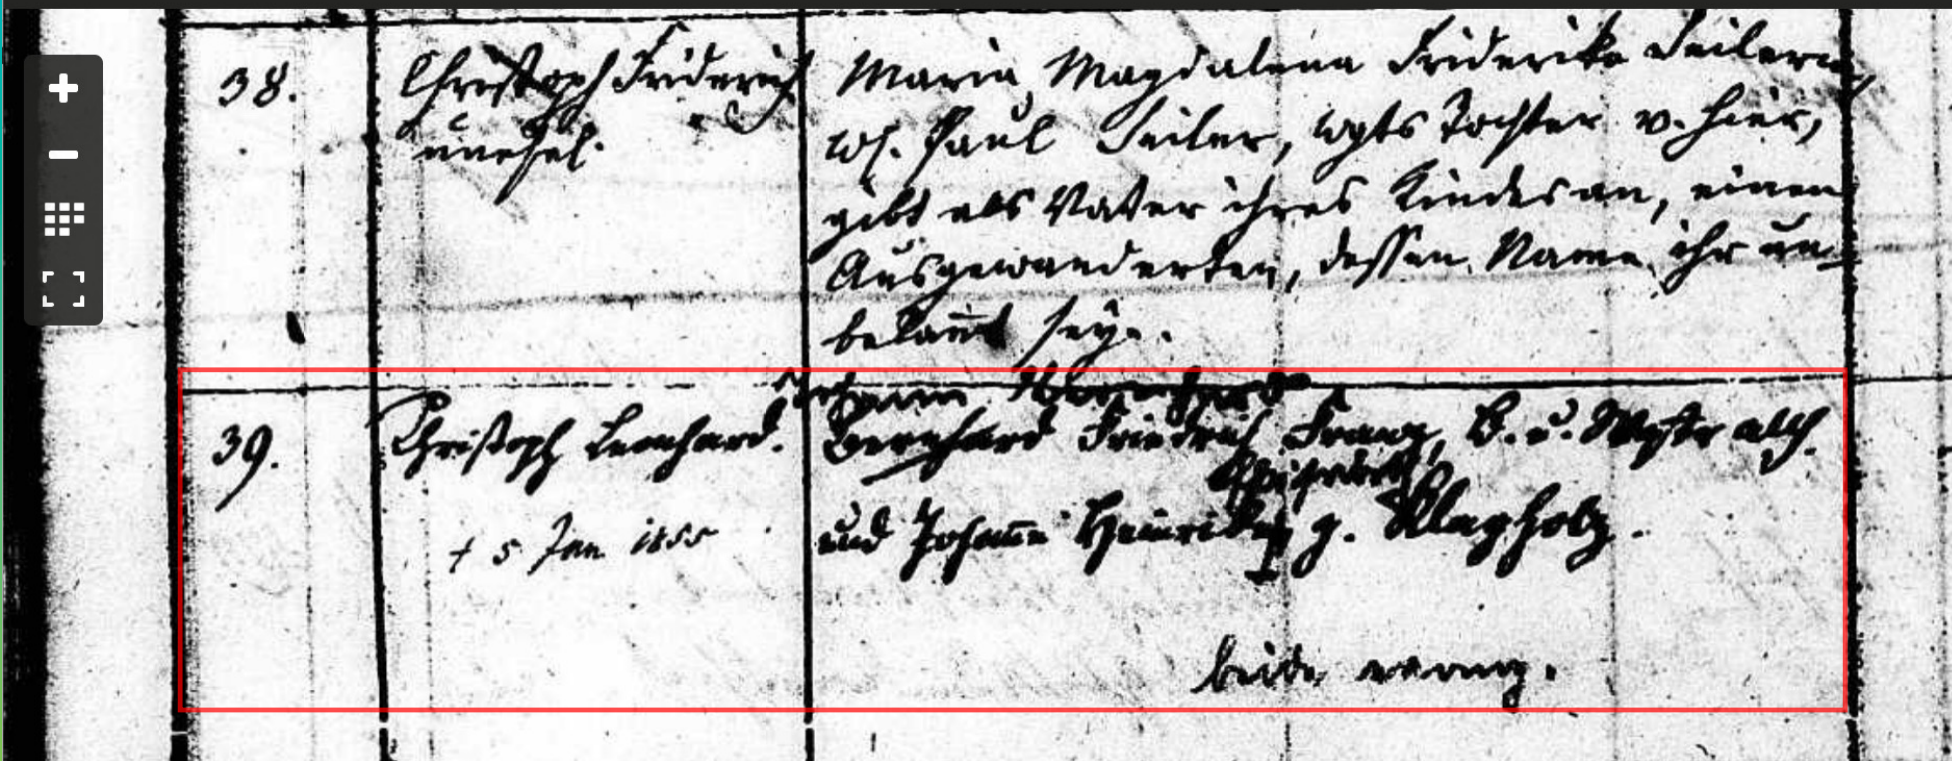 38.
Christoph Friderich
unehel.
Maria Magdalena Friderika Seilerin,
wl. Paul Seiler, wgts Tochter v. hier,
gibt als Vater ihres Kindes an, einen
Ausgewanderten, dessen Name ihr un-
bekañt sey.
39.
Christoph Leonhard.
† 5 Jan 1855
Johann
Bernhard Friedrich Franz, B. u. alh.
und Johañe Heinrike g. Klagholz.
beide evang.